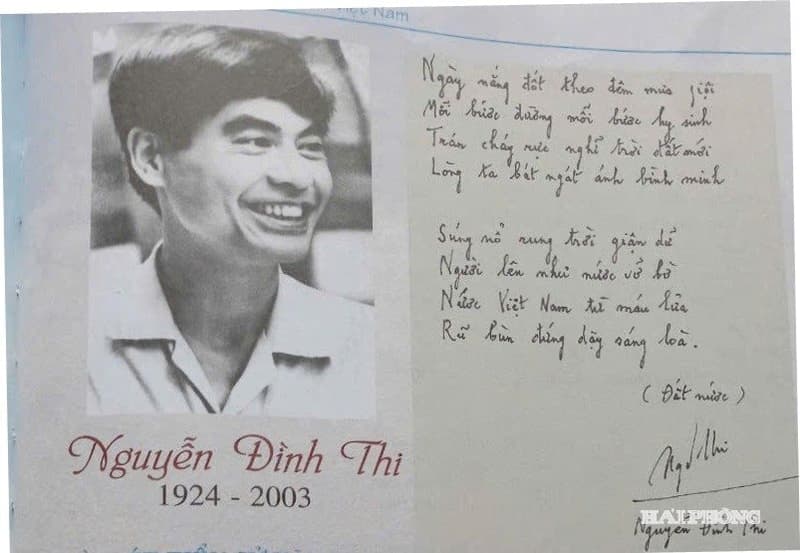 Việt Nam
Ngày nắng đốt theo đêm mưa giội
Mỗi bước đường mỗi bước hy sinh
Trán cháy rực nghĩ trời đất mới
Lòng ta bát ngát ánh bình minh
Súng nổ rung trời giận dữ
Người lên như nước vỡ bờ
Nước Việt Nam từ máu lửa
Rũ bùn đứng dậy sáng loà.
(Đất nước)
Nguyễn Đình Thi
1924 - 2003
HẢI PHÒNG
Nguyễn Đình Thi